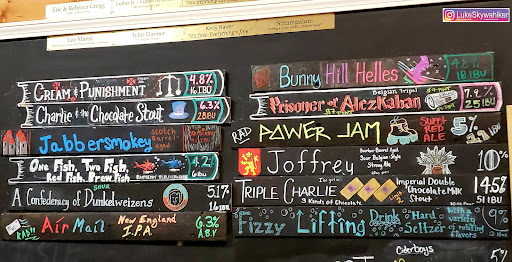 LukeSkywahiker
Eric & Rebecca Gregg
Kelly Raver
Leo Matus
Tyler Danner
CREAM & PUNISHMENT
4.8%
16 IBU
Charlie & the Chocolate Stout
6.3%
28 IBU
Jabbersmokey
SCOTCH
Barrel
Aged
One Fish, Two Fish,
Red Fish, Brew Fish
4.2%
SOUR
A Confederacy of Dunkelweizens
5.1%
16 IBU
RAD!!
Air Mail
New England
I.P.A.
6.3%
A.B.V
Bunny Hill Helles
4.8%
18 IBU
Belgian Tripel
Prisoner of AlezKaban
7.9%
25 IBU
RAD
POWER JAM
Sweet
RED
ALE
5%
Joffrey
Bourbon Barrel Aged
Sour Belgian Style
Strong Ale
10%
TRIPLE CHARLIE
3 Kinds of Chocolate
Imperial Double
Chocolate Milk
Stout
14.5%
51 IBU
Fizzy Lifting
Drink
Hard
Seltzer
with a
variety
of rotating
flavors
Ciderboys
5%